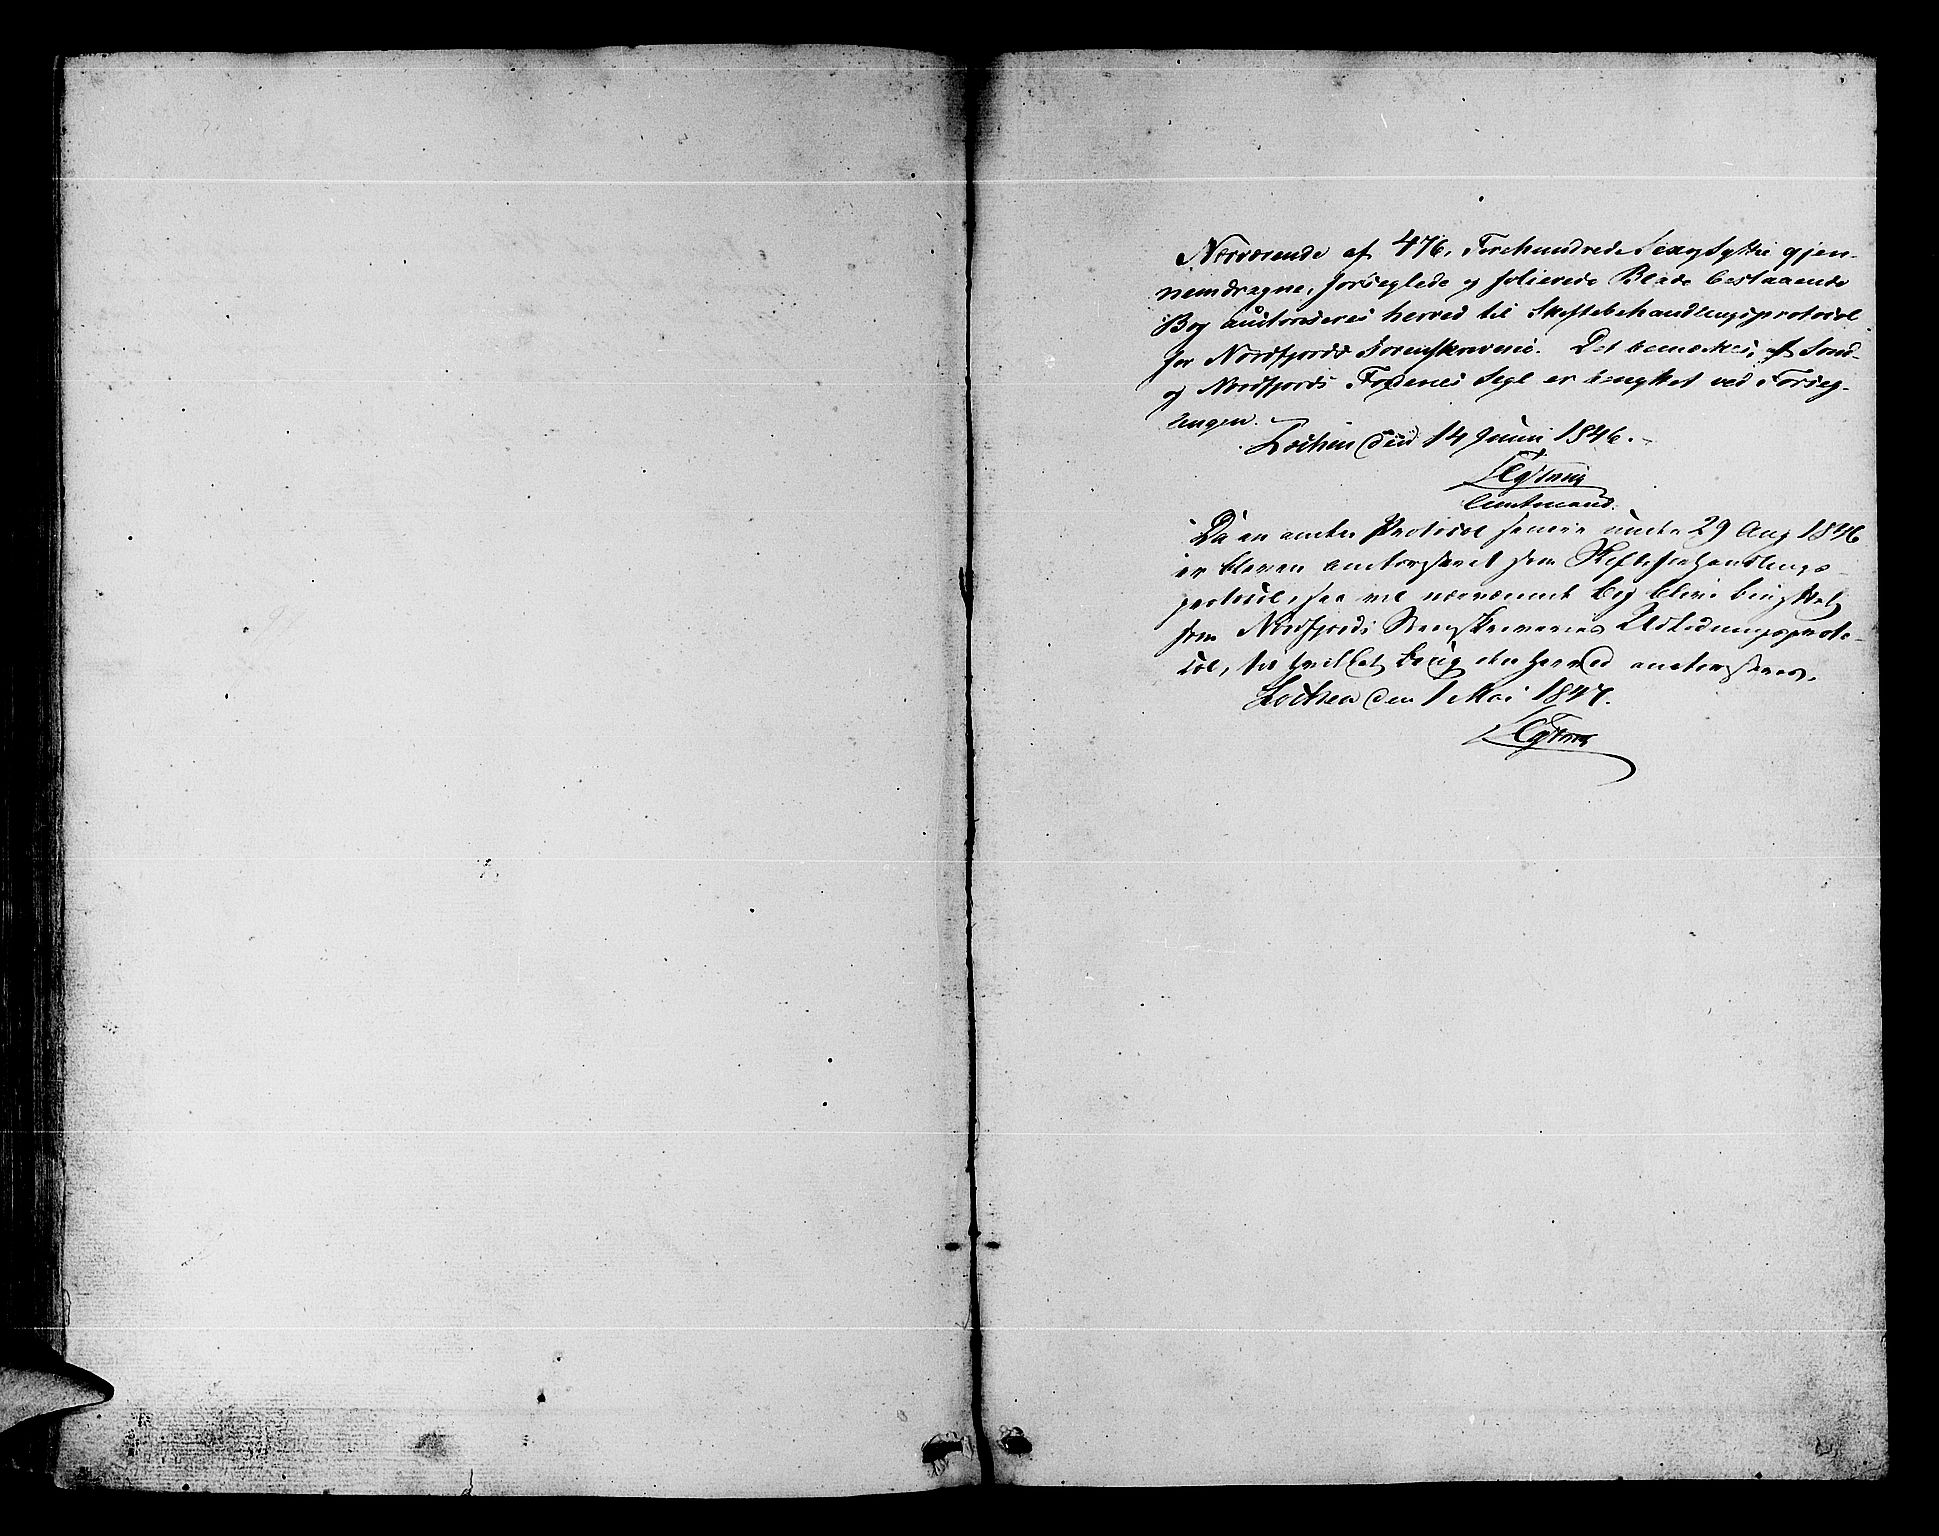 Nærværende af 476, Firehundrede Sexogsyttie gjen-
nemdragne, forseglede og folierede Blade bestaaende
Bog autoriseres herved til Skiftebehandlingsprotocol
for Nordfjords Sorenskriverie. Det bemærkes, at Sønd-
og Nordfjords Fogderies Segl er benyttet ved Forseg-
lingen.
den 14 Juni 1846.
Da en anden Protocol senere under 29 Aug 1846
er bleven autoriseret som Skiftebehandlings-
protocol, saa vil nærværende Bog blive benyttet
som Nordfjords Sorenskriveries Udlodningsproto-
col, til hvilket Brug den herved autoriseres.
den 1 Mai 1847.